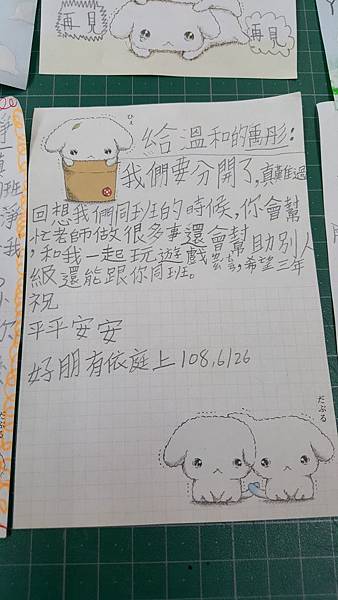 再見
再見
ひぇ
給溫和的禹彤:
我們要分開了,真難過
回想我們同班的時候,你會幫
忙老師做很多事還會幫助別人
,和我一起玩遊戲,希望三年
級還能跟你同班。
祝
平平安安
好朋有依庭上108,6/26
だぷる